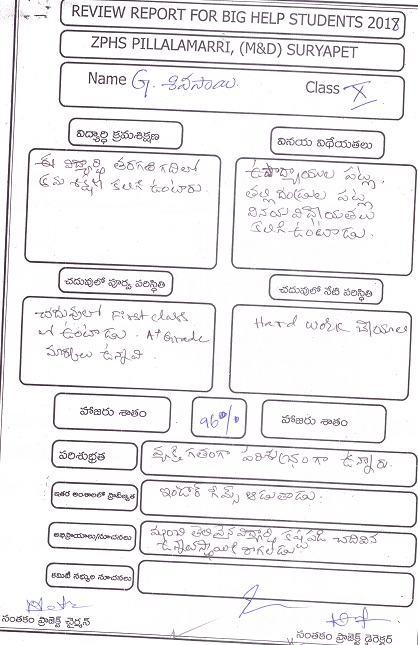 REVIEW REPORT FOR BIG HELP STUDENTS 2018
ZPHS PILLALAMARRI, (M&D) SURYAPET
Name G. శివసాయి. Class X
విద్యార్థి క్రమశిక్షణ
ఈ విద్యార్థి తరగతి గదిలో
క్రమ శిక్షణ కలిగి ఉంటారు.
వినయ విధేయతలు
ఉపాధ్యాయుల పట్ల,
తల్లి దండ్రుల పట్ల
వినయ విధేయతలు
కలిగి ఉంటాడు.
చదువులో పూర్వ పరిస్థితి
చదువులో First class
లో ఉంటాడు. A+ Grade
మార్కులు ఉన్నవి.
చదువులో నేటి పరిస్థితి
Hard work చేయాలి
హాజరు శాతం
96%
హాజరు శాతం
పరిశుభ్రత
వ్యక్తి గతంగా పరిశుభ్రంగా ఉన్నారు.
ఇతర అంశాలలో ప్రావీణ్యత
ఇండోర్ గేమ్స్ ఆడుతాడు.
అభిప్రాయాలు/సూచనలు
మంచి తెలివైన విద్యార్థి కష్టపడి చదివిన
ఉన్నతస్థాయికి రాగలడు
కమిటీ సభ్యుల సూచనలు
సంతకం ప్రాజెక్ట్ చైర్మన్
సంతకం ప్రాజెక్ట్ డైరెక్టర్